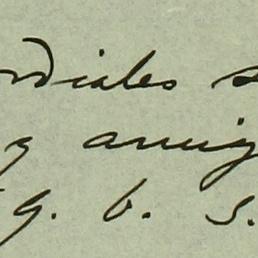 rdiales s
y amig
q. b. s.